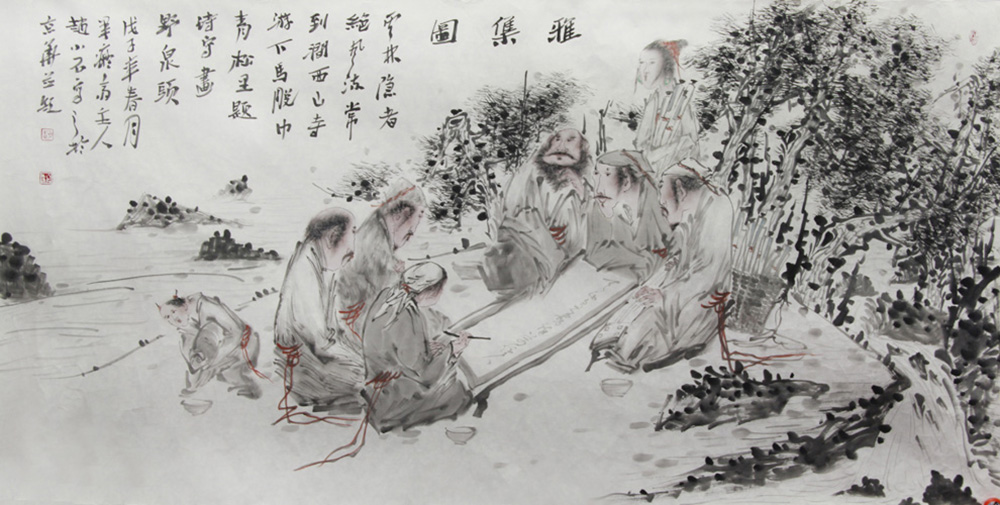 雅集圖
雲林隱者
絕風流常
到湖西山寺
游下馬脫巾
青松里題
詩寫畫
野泉頭
戊子年春月
齋主人
趙小石寫之於
京華並題